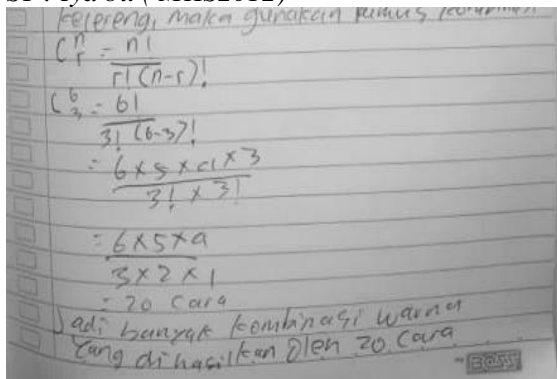 kelereng, maka gunakan rumus kombinasi
C^n_r = n! / r! (n-r)!
C^6_3 = 6! / 3! (6-3)!
= 6 x 5 x 4 x 3 / 3! x 3!
= 6 x 5 x 4 / 3 x 2 x 1
= 20 cara
Jadi banyak kombinasi warna
yang dihasilkan oleh 20 cara
BOSS